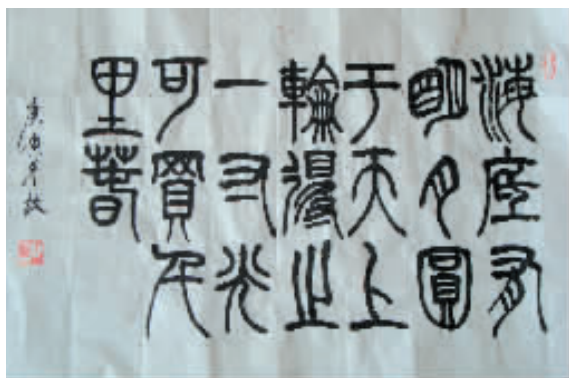 海底有
明月圓
于天上
輪得之
一寸光
可買千
里春